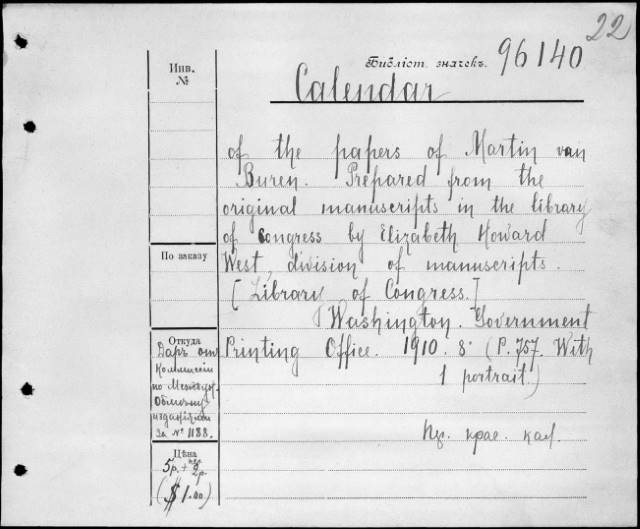 22
Библіот. значекъ. 96140
Инв.
№
Calendar
of the papers of Martin van
Buren. Prepared from the
original manuscripts in the library
of Congress by Elizabeth Howard
По заказу
West, division of manuscripts.
[Library of Congress.]
Washington. Government
Откуда
Printing Office. 1910. 8° (P. 757. With
1 portrait.)
Даръ от
Коммиссіи
по Междунар.
Обмѣну
изданіями
за № 1188.
Пер. крас. кал.
Цѣна
5р. + 2р
($1.00)